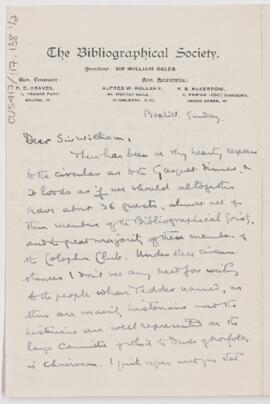 CUS417/117.138 1/2
The Bibliographical Society.
President: SIR WILLIAM OSLER
Hon. Treasurer:
R. E. GRAVES,
EALING, W.
Hon. Secretaries:
ALFRED W. POLLARD,
40, MURRAY ROAD,
WIMBLEDON, S.W.
R. B. McKERROW,
Bexhill. Sunday.
Dear Sir William,
There has been a very hearty response
to the circular as to the Gasquet dinner, &
it looks as if we should altogether
have about 36 guests, almost all of
them members of the Bibliographical Society,
and the great majority of them members of
the Colophon Club. Under these circum-
stances I don't see any need for writing
to the people whom Tedder named, as
they are mainly historians and the
historians are well represented on the
large Committee of which the Duke of Norfolk
is Chairman. I quite agree with you that